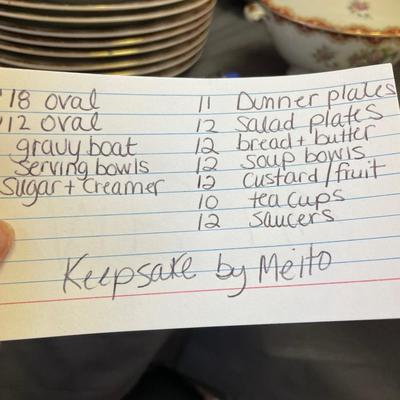 '18 oval
'12 oval
gravy boat
serving bowls
Sugar + Creamer
11 Dunner plates
12 Salad plates
12 bread + butter
12 soup bowls
12 custard/fruit
10 tea cups
12 saucers
Keepsake by Meito